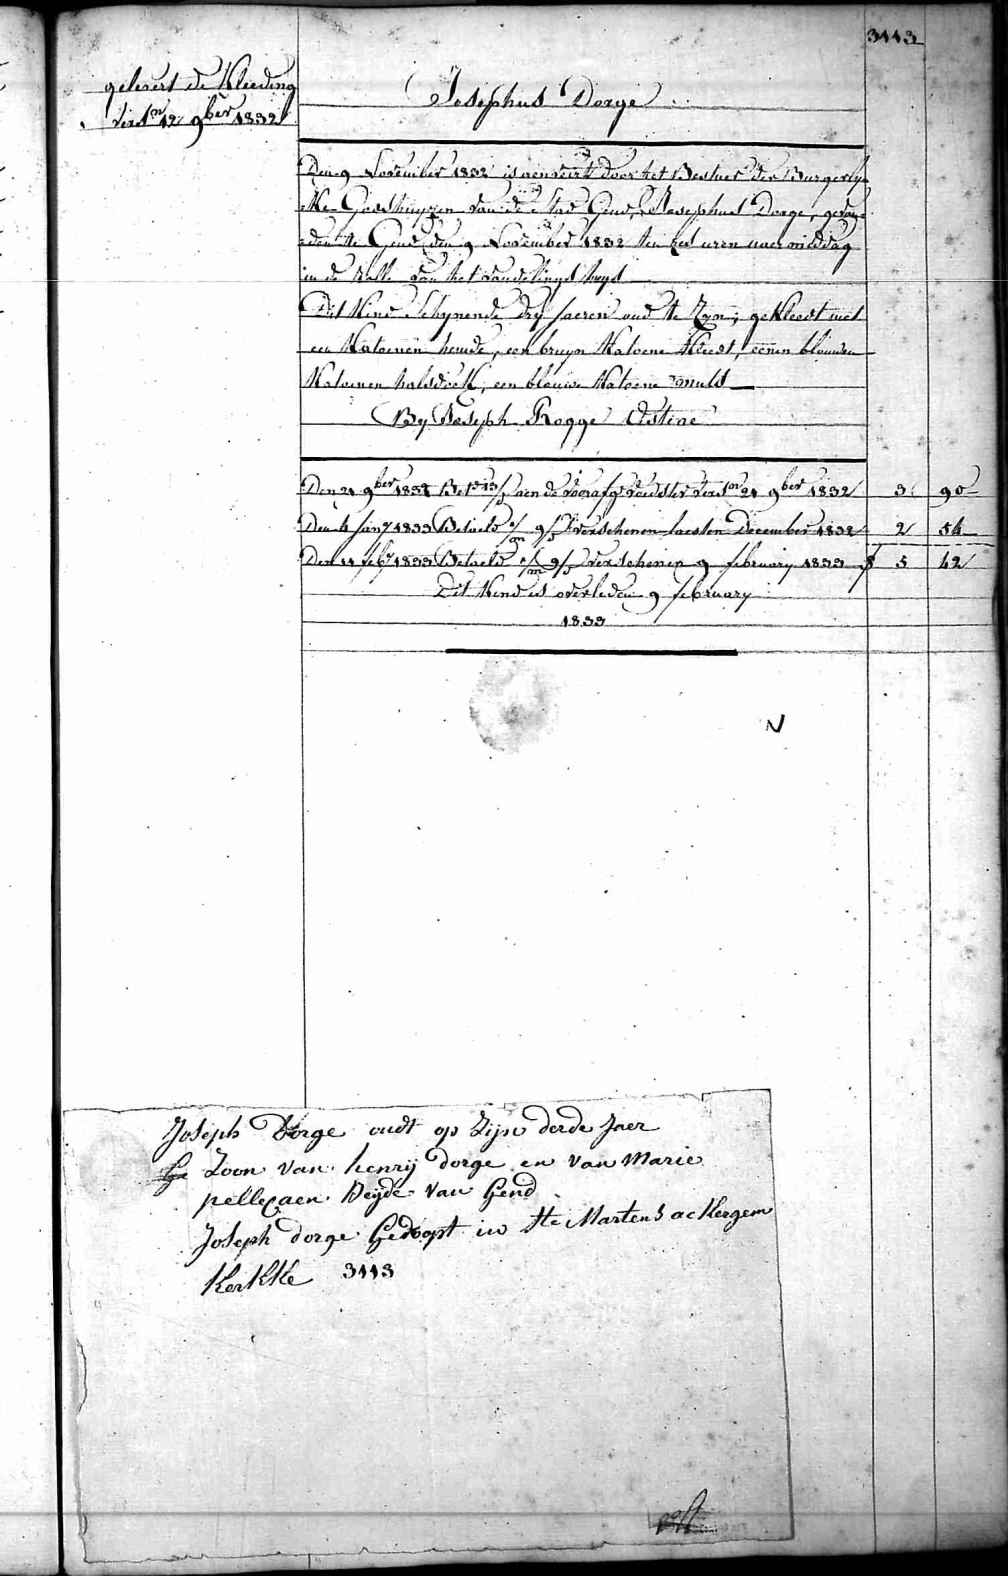 3113
gelevert de Kleeding
versn 12 9ber 1832
Josephus Dorge
Den 9 November 1832 is aenveirt door het Bestuer der Burgerly-
-ke Godshuyzen van de Stad Gend, Josephus Dorge, gevon-
-den te Gend den 9 November 1832 ten uren naermiddag
in de Rolle van het vondelings huys
Dit Kind Schynende dry jaeren oud te Zyn; gekleedt met
een Katoenen hemde, een bruyn Katoene Kleedt, eenen blauwen
Katoenen halsdoek, een blauwe Katoene muts
By Joseph Rogge Astene
Den 21 9ber 1832 aen de voorafg voedster versn 21 9ber 1832 3 90
Den 4 Jany 1833 Betaeld verschenen laesten December 1832 2 54
Den 11 feby 1833 Betaeld verschenen 9 february 1833 f 5 42
Dit Kind is overleden 9 february
1833
N
Joseph Dorge oudt op Zijn derde Jaer
Zoon van henrij dorge en van Marie
pellecaen Beyde van Gend
Joseph dorge Gedoopt in Ste Martens ackergem
KerKKe 3113